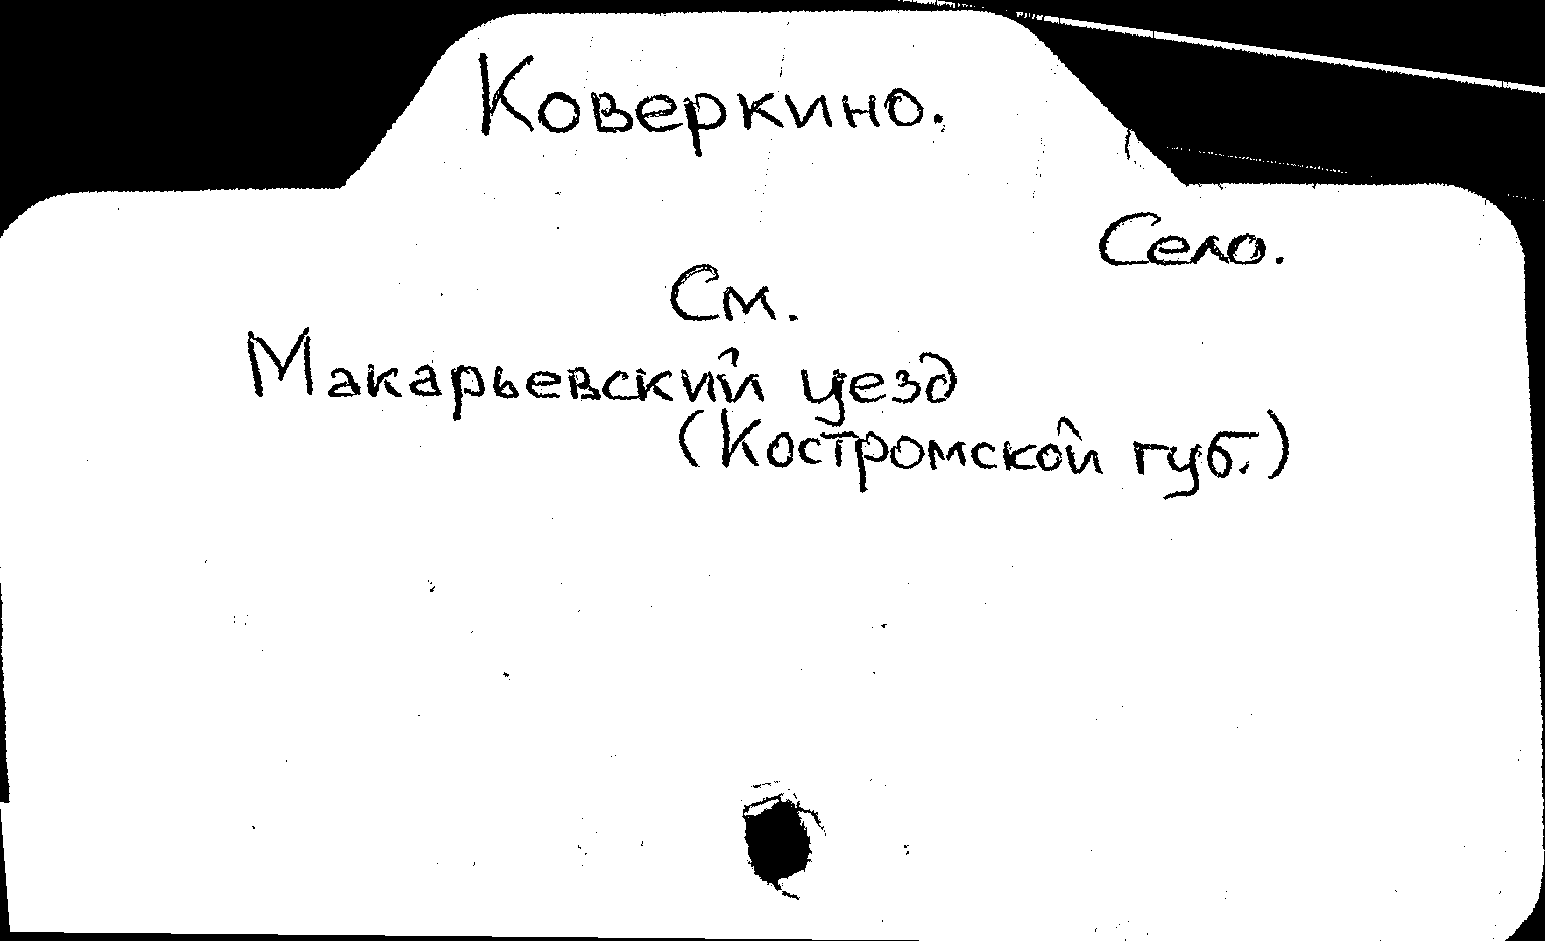 Коверкино.
Село.
См.
Макарьевский уезд
(Костромской губ.)